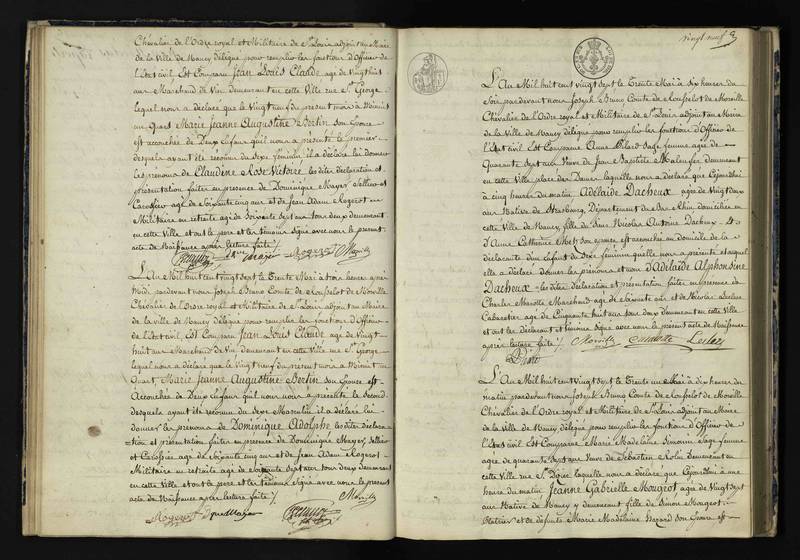 Chevalier de l'Ordre royal et Militaire de St Louis adjoint au Maire
de la Ville de Nancy délégué pour remplir les fonctions d'Officier de
l'Etat civil Est Comparu Jean Louis Claude agé de Vingt huit
ans Marchand de Vin demeurant en cette Ville rue St George
lequel nous a déclaré que le Vingt neuf du present mois à Minuit
un Quart Marie Jeanne Augustine Bertin son Epouse
est accouchée de Deux Enfans qu'il nous a présenté le premier
desquels ayant été reconnu du Sexe féminin il a déclaré lui donner
les prenoms de Claudine Rose Victoire les dites déclaration et
présentation faites en presence de Dominique Mayer Sellier et
Carossier agé de Soixante cinq ans et de Jean Adam Rogerot
Militaire en retraite agé de Soixante sept ans tous deux demeurant
en cette Ville et ont le pere et les témoins signé avec nous le présent
acte de Naissance après lecture faite /.
Mayer Rogerot Morville
L'An Mil huit cent vingt sept le Trente Mai à trois heures après
Midi pardevant nous Joseph Bruno Comte de Morville
Chevalier de l'Ordre royal et Militaire de St Louis adjoint au Maire
de la Ville de Nancy délégué pour remplir les fonctions d'Officier
de l'Etat civil Est Comparu Jean Louis Claude agé de Vingt
huit ans Marchand de Vin demeurant en cette Ville rue St George
lequel nous a déclaré que le Vingt neuf du present mois à Minuit un
Quart Marie Jeanne Augustine Bertin son Epouse est
Accouchée de Deux Enfans qu'il nous a présenté le Second
desquels ayant été reconnu du Sexe Masculin il a déclaré lui
donner les prenoms de Dominique Adolphe les dites déclara
tion et présentation faites en présence de Dominique Mayer Sellier
et Carossier agé de Soixante cinq ans et de Jean Adam Rogerot
Militaire en retraite agé de Soixante sept ans tous deux demeurant
en cette Ville et ont le pere et les témoins Signé avec nous le present
acte de Naissance après lecture faite /. Morville
Rogerot Dque Mayer
vingt neuf
L'An Mil huit cent vingt sept le Trente Mai à six heures du
Soir pardevant nous Joseph Bruno Comte de Morville
Chevalier de l'Ordre royal et Militaire de St Louis adjoint au Maire
de la Ville de Nancy délégué pour remplir les fonctions d'Officier de
l'Etat civil Est Comparue Anne Sage femme agée de
Quarante sept ans Veuve de Jean Baptiste demeurant
en cette Ville place laquelle nous a déclaré que Cejourdhui à
cinq heures du matin Adelaïde Dacheux agée de Vingt deux
ans Native de Strasbourg, Département du Bas Rhin, domiciliée en
cette Ville de Nancy, fille du Sieur Nicolas Antoine Dacheux et
d'Anne Catherine son epouse est accouchée au domicile de la
déclarante d'un Enfant du Sexe féminin quelle nous a presenté et auquel
elle a déclaré donner les prenoms et nom d'Adelaïde Alphonsine
Dacheux les dites déclaration et présentation faites en presence de
Charles Marotte Marchand agé de Soixante ans et de Nicolas Leclerc
Cabaretier agé de Cinquante huit ans tous deux demeurant en cette Ville
et ont les déclarant et témoins signé avec nous le present acte de Naissance
après lecture faite /. Morville Marotte Leclerc
L'An Mil huit cent vingt sept le Trente un Mai à dix heures du
matin pardevant nous Joseph Bruno Comte de Morville
Chevalier de l'Ordre royal et Militaire de St Louis adjoint au Maire
de la Ville de Nancy délégué pour remplir les fonctions d'Officier de
l'Etat civil Est Comparue Marie Madeleine Simonin Sage femme
agée de quarante sept ans Veuve de Sébastien demeurant en
cette Ville rue St laquelle nous a déclaré que Cejourdhui à une
heure du matin Jeanne Gabrielle Mougeot agée de Vingt sept
ans Native de Nancy y demeurant fille de Simon Mougeot
Platrier et de défunte Marie Madeleine Hazard son Epouse est